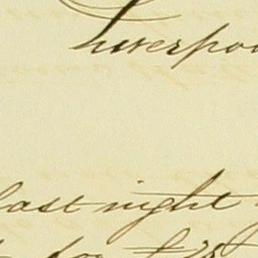 Liverpoo
last night
for £25